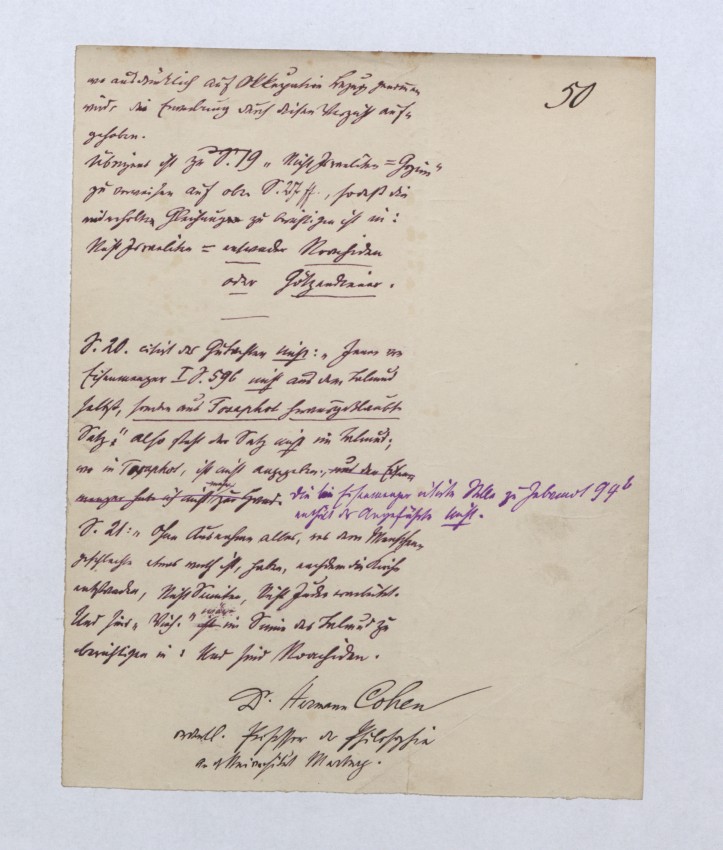 50
wo ausdrücklich auf Okkupation Bezug genommen
wird, die Erwerbung durch diesen Verzicht auf-
gehoben.
Übrigens ist zu S. 19 „Nicht Israeliten = Gojim"
zu verweisen auf oben S. 27 ff., sodaß die
Gleichung zu berichtigen ist in:
Nicht Israeliten = entweder Noachiden
oder Götzendiener.
S. 20. citirt das Gutachten nicht: „Jenen von
Eisenmenger I S. 596 nicht aus dem Talmud
selbst, sondern aus Tosaphot herausgeklaubte
Satz." Also steht der Satz nicht im Talmud;
wo in Tosaphot, ist nicht angegeben, und den Eisen
menger habe ich nicht zur Hand. Die bei Eisenmenger citirte Stelle zu Jebamot 94b
enthält das Angeführte nicht.
S. 21: „Ohne Ausnahme alles, was dem Menschen-
geschlecht etwas werth ist, haben, nachdem die
entstanden, Nicht Semiten, Nicht Juden
Und sind „Vieh." wäre im Sinne des Talmud zu
berichtigen in: Und sind Noachiden.
Dr. Hermann Cohen
ordentl. Professor der Philosophie
an d. Universität Marburg.